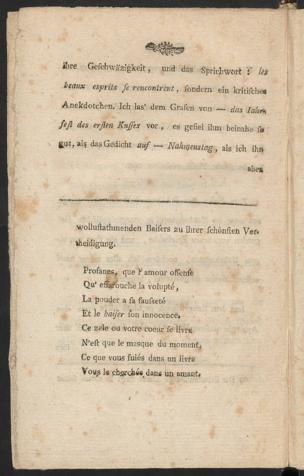 ihre Geschwäzigkeit, und das Sprichwort: les
beaux esprits se rencontrent, sondern ein kritisches
Anekdotchen. Ich las' dem Grafen von — das Jahrs
fest des ersten Kusses vor, es gefiel ihm beinahe so
gut, als das Gedicht auf — Nahmenstag, als ich ihn
aber
wollustathmenden Baisers zu ihrer schönsten Ver-
theidigung.
Profanes, que l'amour offense
Qu' effarouche la volupté,
La pouder a sa fausseté
Et le baiser son innocence.
Ce zele ou votre coeur se livre
N'est que le masque du moment,
Ce que vous fuiés dans un livre
Vous le cherchés dans un amant.